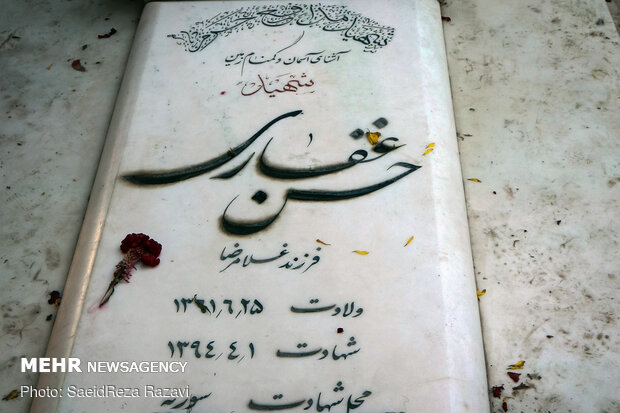 آشنای آسمان و گمنام زمین
شهید
حسن غفاری
فرزند غلامرضا
ولادت ۱۳۶۱٫۶٫۲۵
شهادت ۱۳۹۴٫۴٫۱
محل شهادت سوریه
MEHR NEWSAGENCY
Photo: SaeidReza Razavi